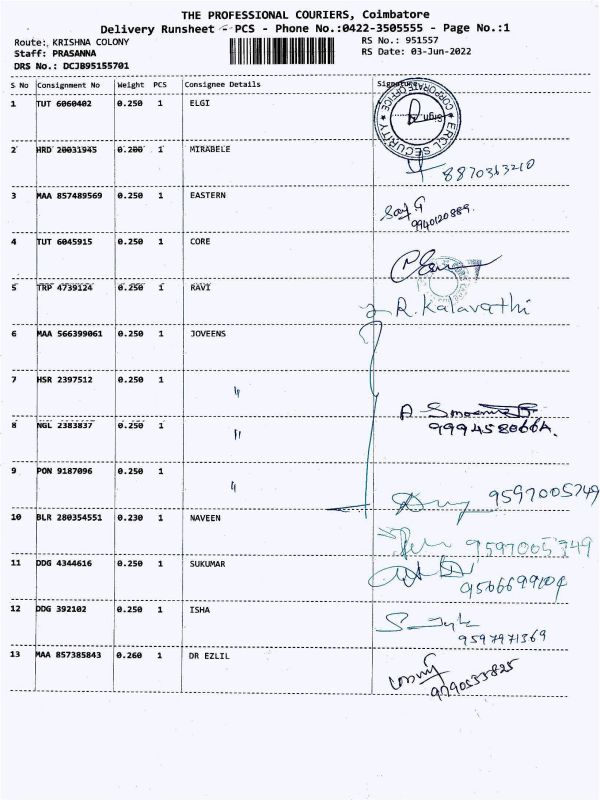 THE PROFESSIONAL COURIERS, Coimbatore
Delivery Runsheet - PCS - Phone No.:0422-3505555 - Page No.:1
Route: KRISHNA COLONY RS No.: 951557
Staff: PRASANNA RS Date: 03-Jun-2022
DRS No.: DCJB95155701
S No Consignment No Weight PCS Consignee Details Signature
1 TUT 6060402 0.250 1 ELGI
CORPORATE OFFICE
ERCL SECURITY
2 HRD 20031945 0.200 1 MIRABELE
8870363210
3 MAA 857489569 0.250 1 EASTERN
9940120889.
4 TUT 6045915 0.250 1 CORE
5 TRP 4739124 0.250 1 RAVI
R. Kalavathi
6 MAA 566399061 0.250 1 JOVEENS
7 HSR 2397512 0.250 1 "
8 NGL 2383837 0.250 1 "
9 PON 9187096 0.250 1 "
9597005749
10 BLR 280354551 0.230 1 NAVEEN
9597005749
11 DDG 4344616 0.250 1 SUKUMAR
9566699104
12 DDG 392102 0.250 1 ISHA
9597971369
13 MAA 857385843 0.260 1 DR EZLIL
9790533825